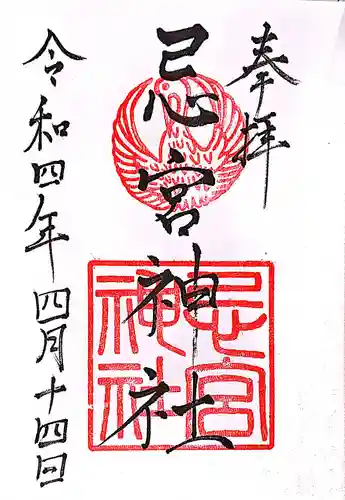 奉拝
忌宮神社
忌宮
神社
令和四年四月十四日